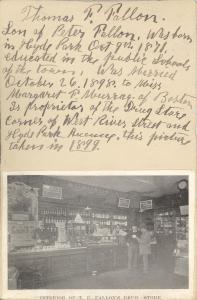 Thomas F. Fallon.
Son of Peter Fallon, was born
in Hyde Park Oct 9th 1871,
educated in the public schools
of the town, Was Married
October 26, 1898, to Miss
Margaret P. Murray, of Boston
Is proprietor of the Drug Store
corner of West River street and
Hyde Park Avenue, this picture
taken in 1899.
INTERIOR OF T. F. FALLON'S DRUG STORE